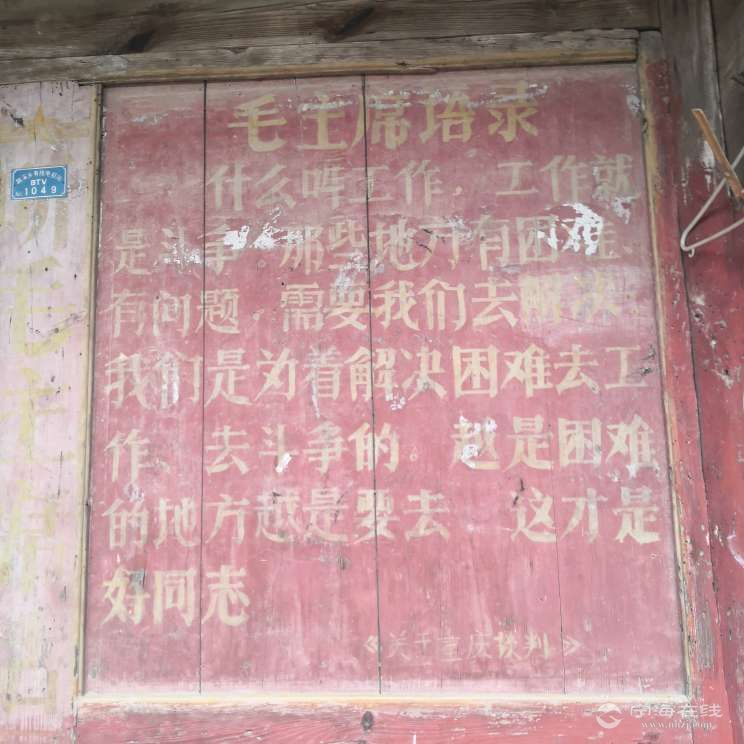 毛主席语录
什么叫工作，工作就
是斗争 那些地方有困难
有问题，需要我们去解决，
我们是为着解决困难去工
作、去斗争的。越是困难
的地方越是要去 这才是
好同志
《关于重庆谈判》
BTV
1049
毛主席
宁海在线